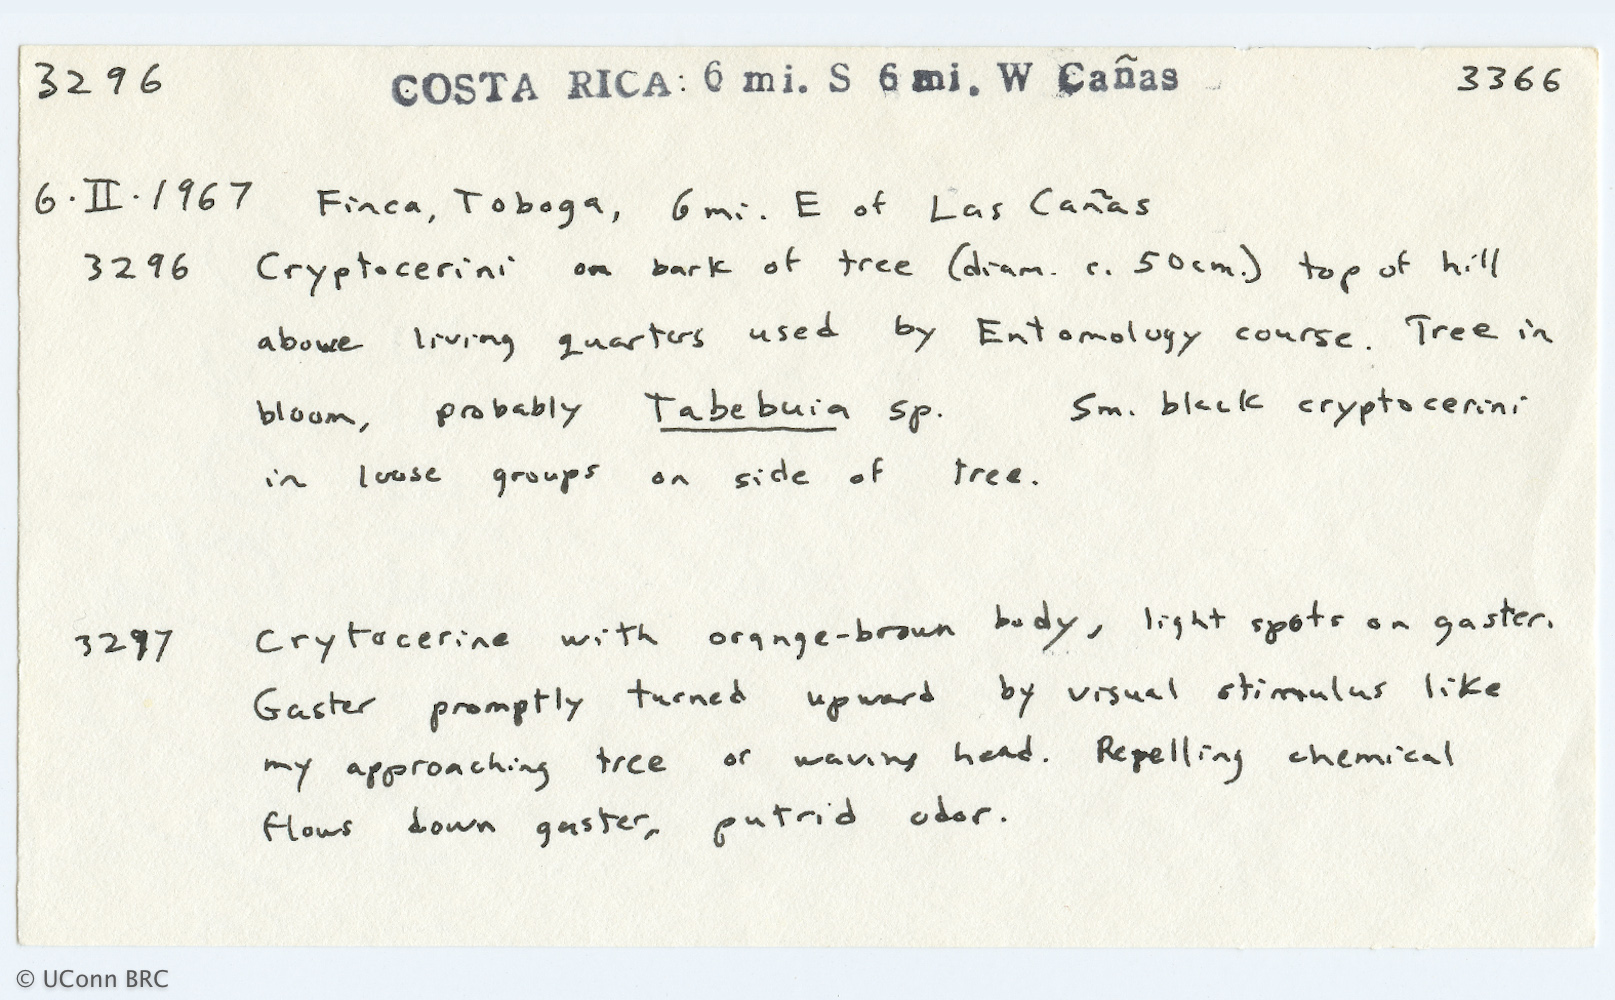 3296 COSTA RICA: 6 mi. S 6 mi. W Cañas 3366
6·II·1967 Finca, Toboga, 6 mi. E of Las Cañas
3296 Cryptocerini on bark of tree (diam. c. 50cm.) top of hill
above living quarters used by Entomology course. Tree in
bloom, probably Tabebuia sp. Sm. black cryptocerini
in loose groups on side of tree.
3297 Crytocerine with orange-brown body, light spots on gaster.
Gaster promptly turned upward by visual stimulus like
my approaching tree or waving head. Repelling chemical
flows down gaster, putrid odor.
© UConn BRC